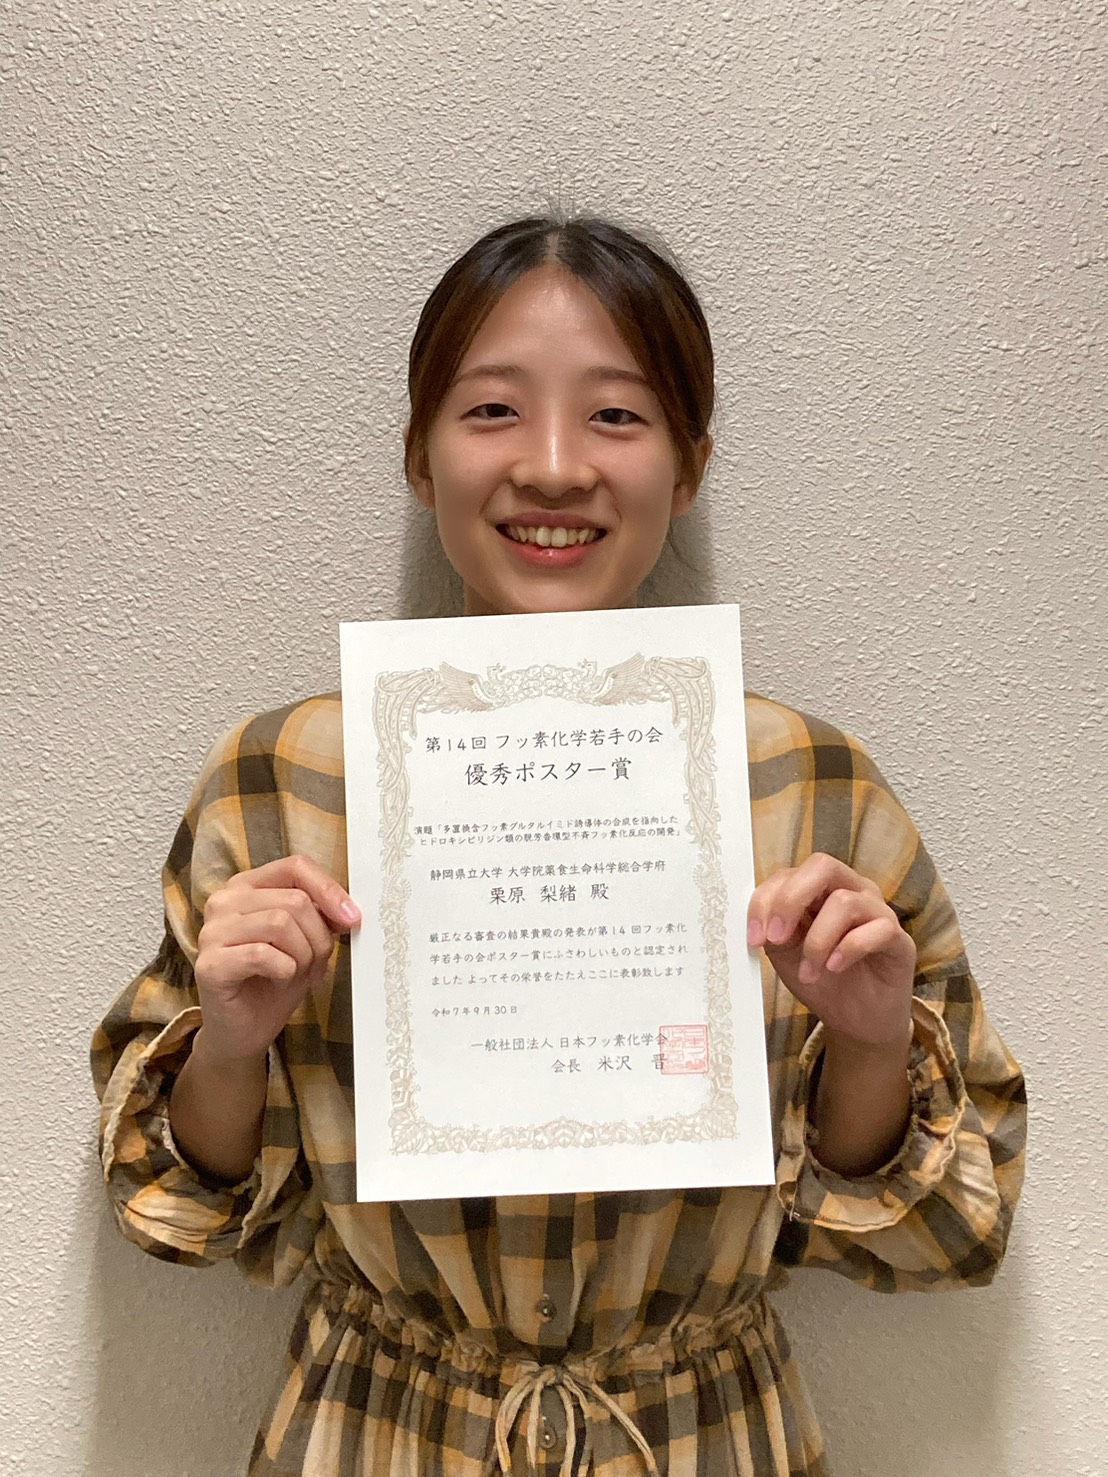 第14回 フッ素化学若手の会
優秀ポスター賞
演題「多置換含フッ素グルタルイミド誘導体の合成を指向した
ヒドロキシピリジン類の脱芳香環型不斉フッ素化反応の開発」
静岡県立大学 大学院薬食生命科学総合学府
栗原 梨緒 殿
厳正なる審査の結果貴殿の発表が第14回フッ素化
学若手の会ポスター賞にふさわしいものと認定され
ました よってその栄誉をたたえここに表彰致します
令和7年9月30日
一般社団法人 日本フッ素化学会
会長 米沢 晋